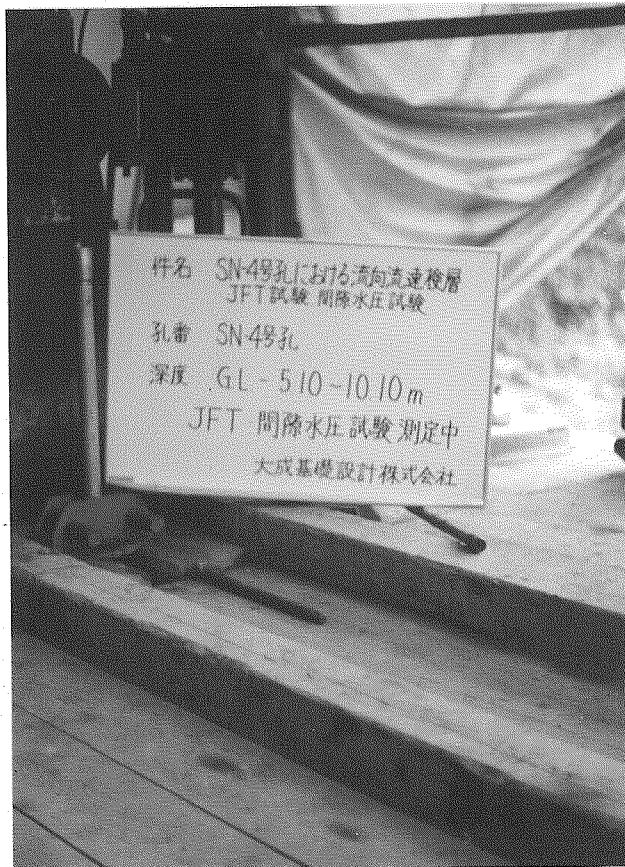 件名 SN-4号孔における流向流速検層
JFT試験 間隙水圧試験
孔番 SN-4号孔
深度 GL-5.10~10.10m
JFT 間隙水圧試験 測定中
大成基礎設計株式会社